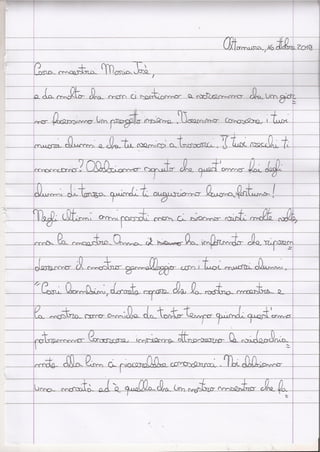 Altamura, 16 ottobre 2019
Cara maestra Maria Josè,
è da molto che non ci sentiamo e volevamo che un gior
no facessimo un progetto insieme. Vorremmo conoscere i tuoi
nuovi alunni e che tu venissi a trovarci. I tuoi vecchi ti
mancano? Abbiamo saputo che quest'anno hai degli
alunni di terza quindi ti auguriamo buona fortuna!
Negli ultimi anni passati non ci siamo visti molte volte,
ma la maestra Anna ha informato che ripren
deremo il nostro gemellaggio con i tuoi nuovi alunni.
"Cari bambini, dovete sapere che la vostra maestra e
la nostra sono amiche da tanto tempo quindi quest'anno
potremmo conoscerci insieme attraverso la videochia
mata alla lim ci piacerebbe conoscervi. Noi abbiamo
una novità ed è quella che un nostro maestro che fa